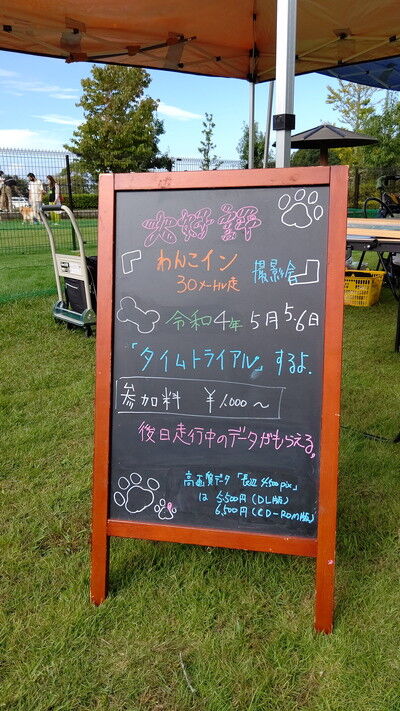 大好評
わんこイン 撮影会
30メートル走
令和4年 5月5.6日
「タイムトライアル」するよ.
参加料 ¥1.000〜
後日走行中のデータがもらえる。
高画質データ「長辺4,500pix」
は 5,500円(DL版)
6,500円(CD-ROM版)